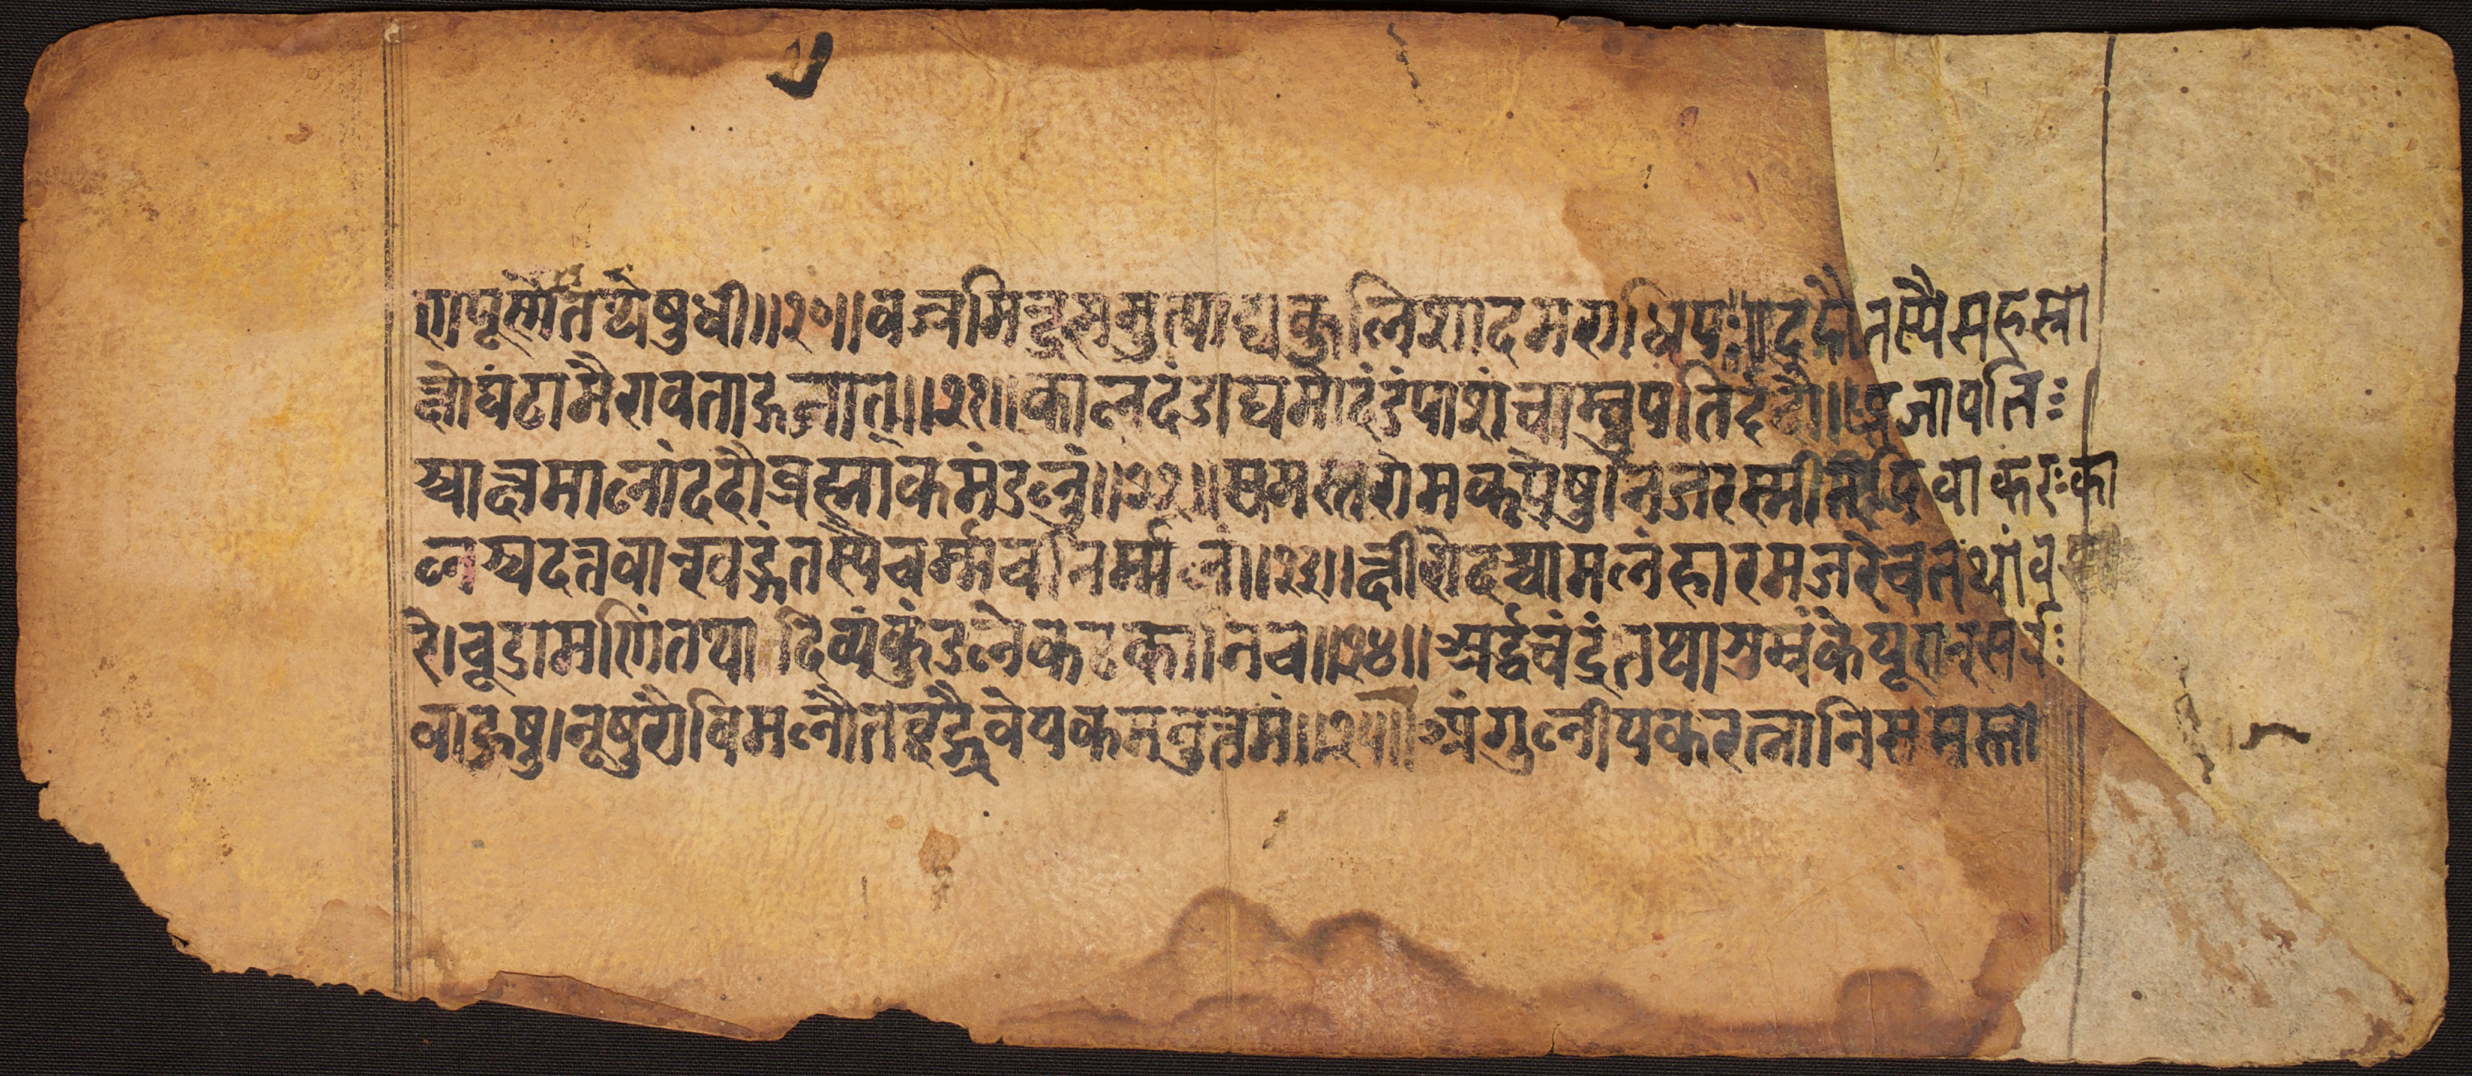 ण पूर्ण्णेतथेषुधी॥२०॥वज्रमिन्द्रसमुत्पाद्यकुलिशादमराधिपः॥ददौतस्यैसहस्रा
क्षोघंटामैरावताद्गजात्॥२१॥कालदंडाद्यमोदंडंपाशंचाम्बुपतिर्ददौ॥प्रजापतिः
श्चाक्षमालांददौब्रह्माकमंडलुं॥२२॥समस्तरोमकूपेषुनिजरश्मीन्दिवाकरःका
लश्चदत्तवान्खड्गंतस्यैचर्म्मचनिर्म्मलं॥२३॥क्षीरोदश्चामलंहारमजरेचतथांव
रे।चूडामणिंतथा दिव्यंकुंडलेकटकानिच॥२४॥अर्द्धचंद्रंतथाशुभ्रंकेयूरान्सर्व
बाहुषु।नूपुरौविमलौतद्वद्ग्रैवेयकमनुत्तमं॥२५॥अंगुलीयकरत्नानिसमस्ता